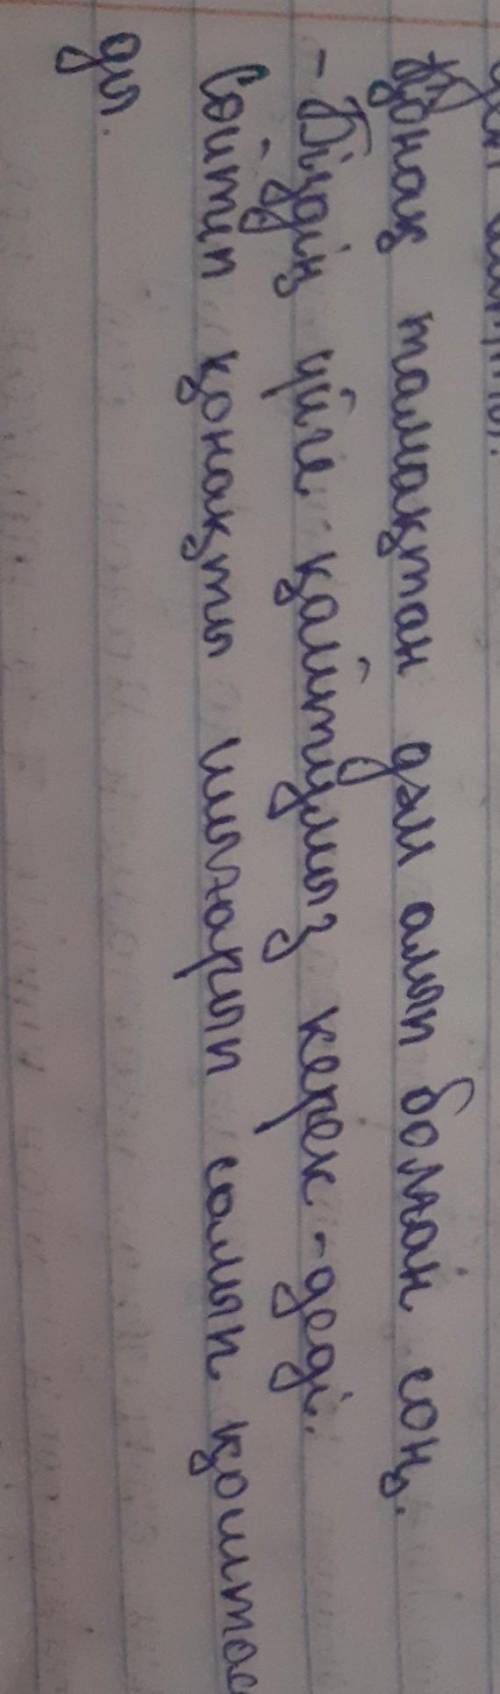 Қонақ тамақтан дәм алып болған соң.
- Біздің үйге қайтуымыз керек -деді.
Сөйтіп қонақты шығарып салып қоштас
ды.